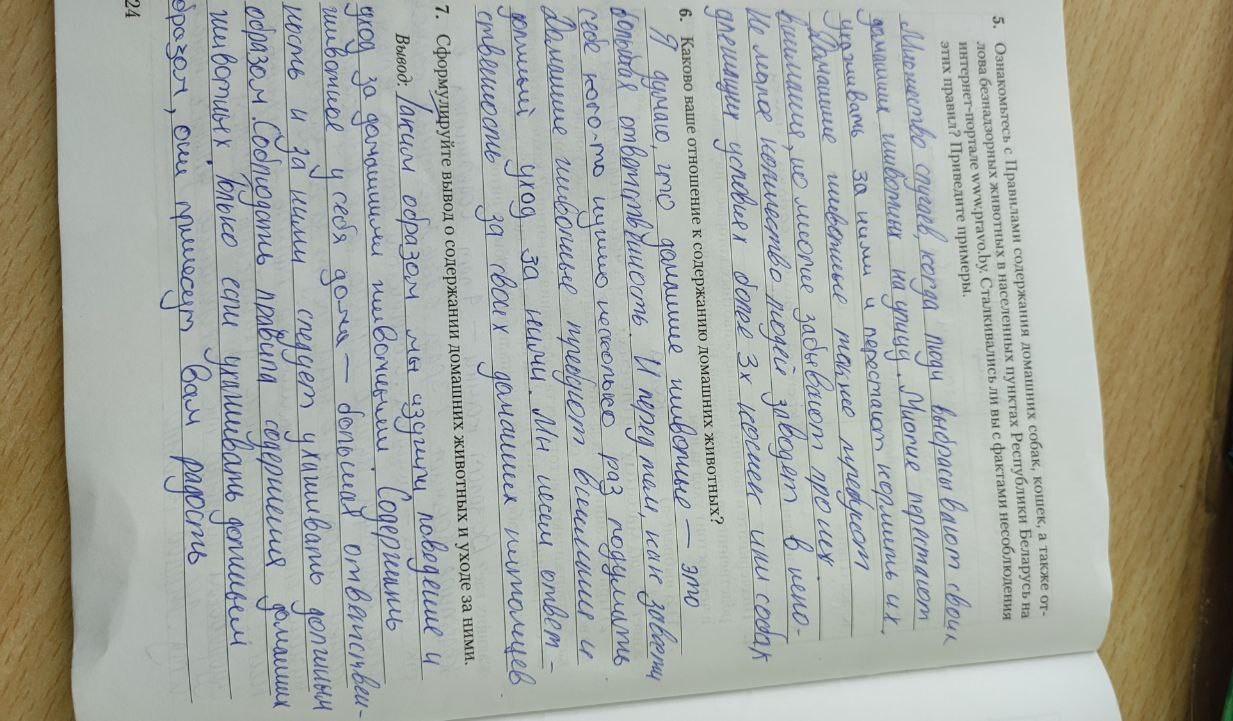 5. Ознакомьтесь с Правилами содержания домашних собак, кошек, а также от-
лова безнадзорных животных в населенных пунктах Республики Беларусь на
интернет-портале www.pravo.by. Сталкивались ли вы с фактами несоблюдения
этих правил? Приведите примеры.
Множество случаев, когда люди выбрасывают своих
домашних животных на улицу. Многие перестают
ухаживать за ними и перестают кормить их.
Домашние животные также требуют
внимания, но многие забывают про них.
Не малое количество людей заводят в непо-
длежащих условиях более 3х кошек или собак
6. Каково ваше отношение к содержанию домашних животных?
Я думаю, что домашние животные — это
большая ответственность. И перед тем, как завести
себе кого-то нужно несколько раз подумать
Домашние животные требуют внимания и
должный уход за ними. Мы несем ответ-
ственность за своих домашних питомцев.
7. Сформулируйте вывод о содержании домашних животных и уходе за ними.
Вывод: Таким образом мы изучили поведение и
уход за домашними животными. Содержать
животное у себя дома — большая ответствен-
ность и за ними следует ухаживать должным
образом. Соблюдать правила содержения домашних
животных. Только если ухаживать должным
образом, они принесут Вам радость
24